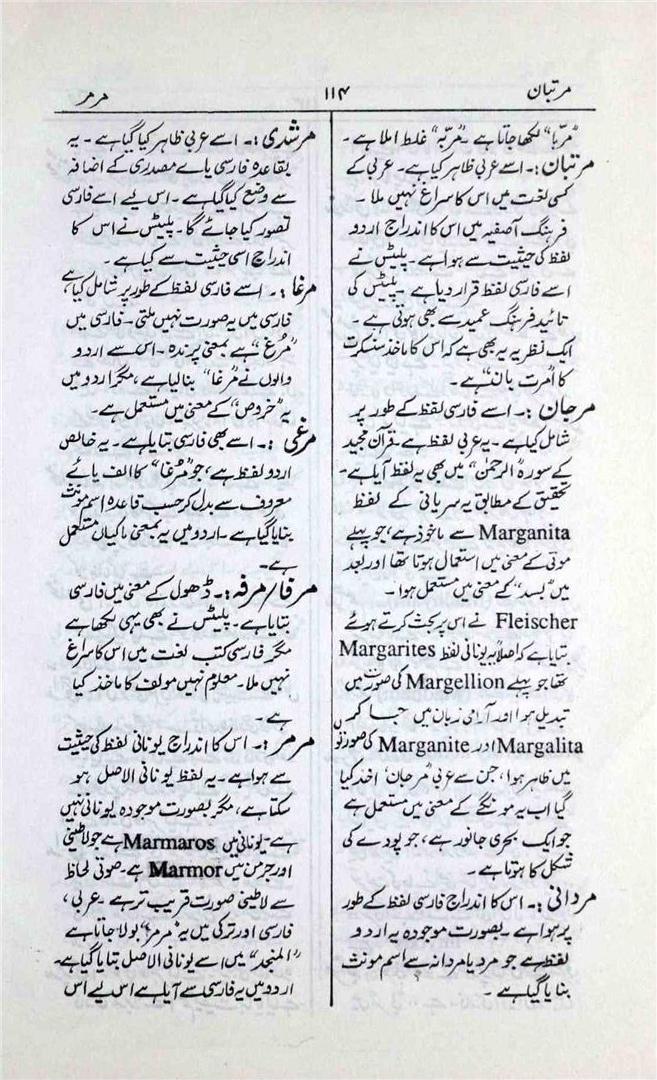 مرتبان
۱۱۴
مرمر
"مربّا" لکھا جاتا ہے۔ "مربّہ" غلط املا ہے۔
مرتبان :۔ اسے عربی ظاہر کیا ہے۔ عربی کے
کسی لغت میں اس کا سراغ نہیں ملا۔
فرہنگ آصفیہ میں اس کا اندراج اردو
لفظ کی حیثیت سے ہوا ہے۔ پلیٹس نے
اسے فارسی لفظ قرار دیا ہے۔ پلیٹس کی
تائید فرہنگ عمید سے بھی ہوتی ہے۔
ایک نظریہ یہ بھی ہے کہ اس کا ماخذ سنسکرت
کا اُمرت بان ہے۔
مرجان :۔ اسے فارسی لفظ کے طور پر
شامل کیا ہے۔ یہ عربی لفظ ہے۔ قرآن مجید
کے سورہ "الرحمٰن" میں بھی یہ لفظ آیا ہے۔
تحقیق کے مطابق یہ سریانی کے لفظ
Marganita سے ماخوذ ہے، جو پہلے
موتی کے معنی میں استعمال ہوتا تھا اور بعد
میں "بسد" کے معنی میں مستعمل ہوا۔
Fleischer نے اس پر بحث کرتے ہوئے
بتایا ہے کہ اصلاً یہ یونانی لفظ Margarites
تھا جو پہلے Margellion کی صورت میں
تبدیل ہوا اور آرامی زبان میں جا کر
Margalita اور Marganite کی صورتوں
میں ظاہر ہوا، جن سے عربی "مرجان" اخذ کیا
گیا اب یہ مونگے کے معنی میں مستعمل ہے
جو ایک بحری جانور ہے، جو پودے کی
شکل کا ہوتا ہے۔
مردانی :۔ اس کا اندراج فارسی لفظ کے طور
پر ہوا ہے۔ بصورت موجودہ یہ اردو
لفظ ہے جو مرد یا مردانہ سے اسم مونث
بنایا گیا ہے۔
مرشدی :۔ اسے عربی ظاہر کیا گیا ہے۔ یہ
بقاعدہ فارسی یاے مصدری کے اضافہ
سے وضع کیا گیا ہے۔ اس لیے اسے فارسی
تصور کیا جائے گا۔ پلیٹس نے اس کا
اندراج اسی حیثیت سے کیا ہے۔
مرغا :۔ اسے فارسی لفظ کے طور پر شامل کیا ہے
فارسی میں یہ صورت نہیں ملتی۔ فارسی میں
"مُرغ" ہے بمعنی پرندہ۔ اس سے اردو
والوں نے "مُرغا" بنا لیا ہے، مگر اردو میں
یہ "خروس" کے معنی میں مستعمل ہے۔
مرغی :۔ اسے بھی فارسی بتایا ہے۔ یہ خالص
اردو لفظ ہے، جو "مُرغا" کا الف یائے
معروف سے بدل کر حسب قاعدہ اسم مونث
بنایا گیا ہے۔ اردو میں یہ بمعنی ماکیاں مستعمل
ہے۔
مرفا/مرفہ :۔ ڈھول کے معنی میں فارسی
بتایا ہے۔ پلیٹس نے بھی یہی لکھا ہے
مگر فارسی کتب لغت میں اس کا سراغ
نہیں ملا۔ معلوم نہیں مولف کا ماخذ کیا
ہے۔
مرمر :۔ اس کا اندراج یونانی لفظ کی حیثیت
سے ہوا ہے۔ یہ لفظ یونانی الاصل ہو
سکتا ہے، مگر بصورت موجودہ یونانی نہیں
ہے۔ یونانی میں Marmaros ہے جو لاطینی
اور جرمن میں Marmor ہے۔ صوتی لحاظ
سے لاطینی صورت قریب تر ہے۔ عربی،
فارسی اور ترکی میں یہ "مرمر" بولا جاتا ہے
"المنجد" میں اسے یونانی الاصل بتایا گیا ہے۔
اردو میں یہ فارسی سے آیا ہے اس لیے اس